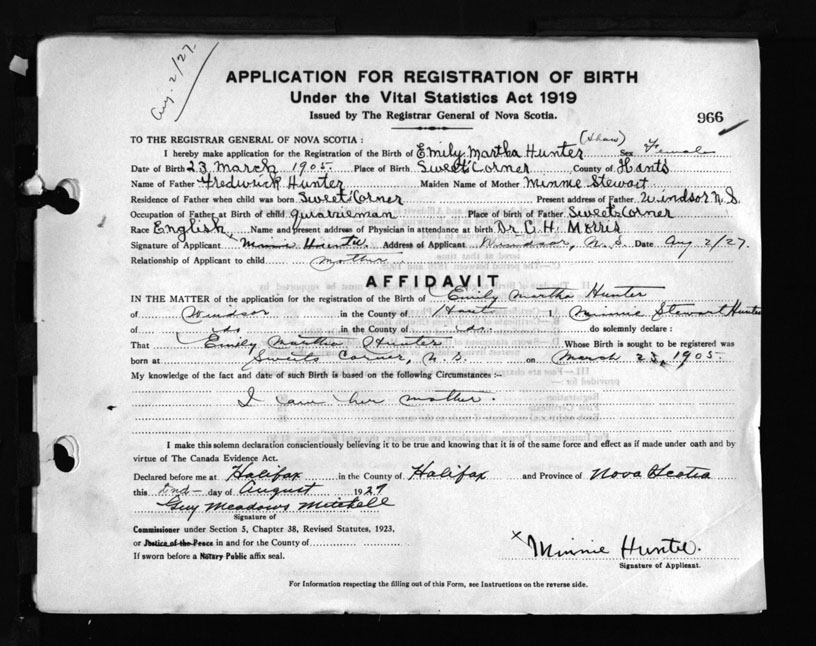 Aug. 2/27.
APPLICATION FOR REGISTRATION OF BIRTH
Under the Vital Statistics Act 1919
Issued by The Registrar General of Nova Scotia.
966
TO THE REGISTRAR GENERAL OF NOVA SCOTIA:
(Shaw)
I hereby make application for the Registration of the Birth of Emily Martha Hunter Sex Female
Date of Birth 23 March 1905. Place of Birth Sweet Corner County of Hants
Name of Father Fredrick Hunter Maiden Name of Mother Minnie Stewart
Residence of Father when child was born Sweet Corner Present address of Father Windsor N.S.
Occupation of Father at Birth of child Place of birth of Father Sweets Corner
Race English Name and present address of Physician in attendance at birth Dr C. H. Morris
Signature of Applicant x Minnie Hunter. Address of Applicant Windsor, N. S. Date Aug 2/27.
Relationship of Applicant to child mother
AFFIDAVIT
IN THE MATTER of the application for the registration of the Birth of Emily Martha Hunter
of Windsor in the County of Hants I, Minnie Stewart Hunter
of do in the County of do. do solemnly declare:
That Emily Martha Hunter Whose Birth is sought to be registered was
born at Sweets Corner, N. S. on March 23, 1905.
My knowledge of the fact and date of such Birth is based on the following Circumstances :-
I am her mother.
I make this solemn declaration conscientiously believing it to be true and knowing that it is of the same force and effect as if made under oath and by
virtue of The Canada Evidence Act.
Declared before me at Halifax in the County of Halifax and Province of Nova Scotia
this 2nd day of August 1927
Guy Meadows Mitchell
Signature of
Commissioner under Section 5, Chapter 38, Revised Statutes, 1923,
or Justice of the Peace in and for the County of
If sworn before a Notary Public affix seal.
x Minnie Hunter.
Signature of Applicant.
For Information respecting the filling out of this Form, see Instructions on the reverse side.